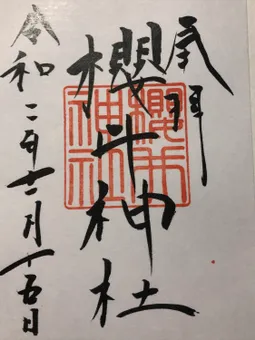 奉拝
櫻井神社
令和二年十一月十五日